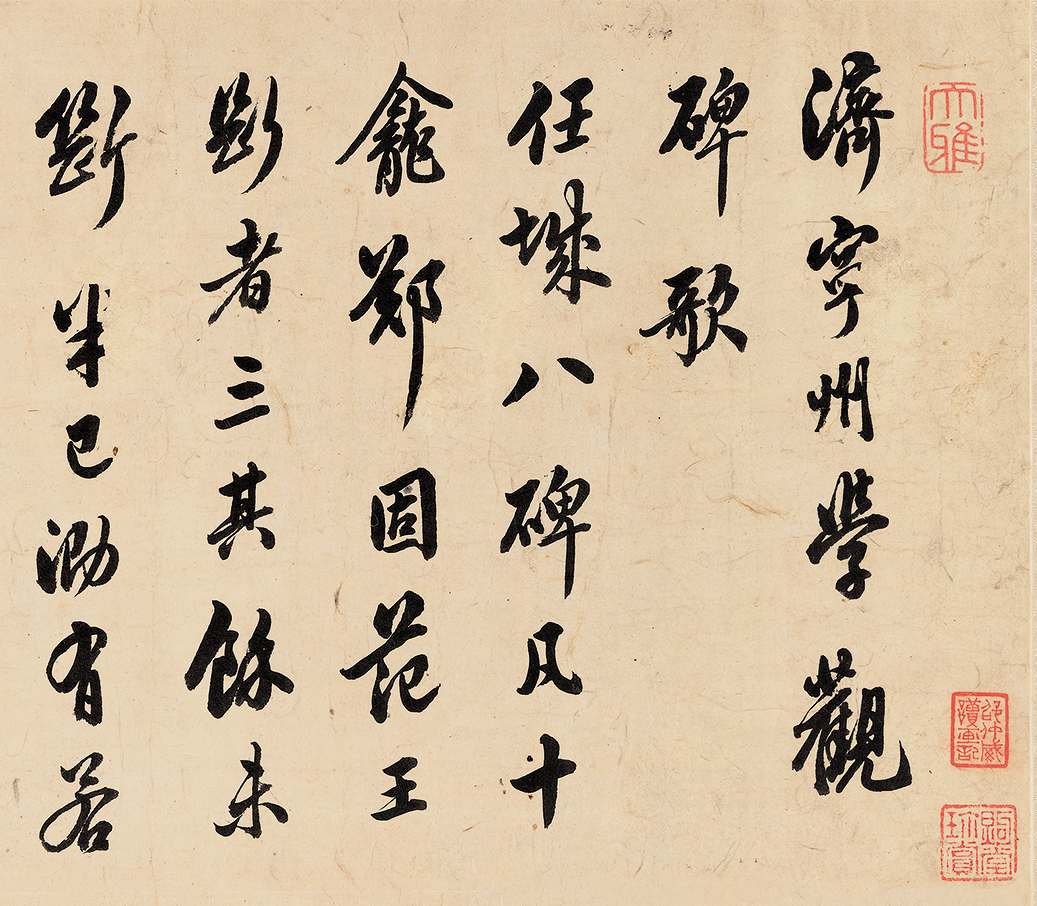 大雅
濟寧州學觀
碑歌
任城八碑凡十
龕鄭固范王
者三其餘未
斷半已泐有若
堂珍賞